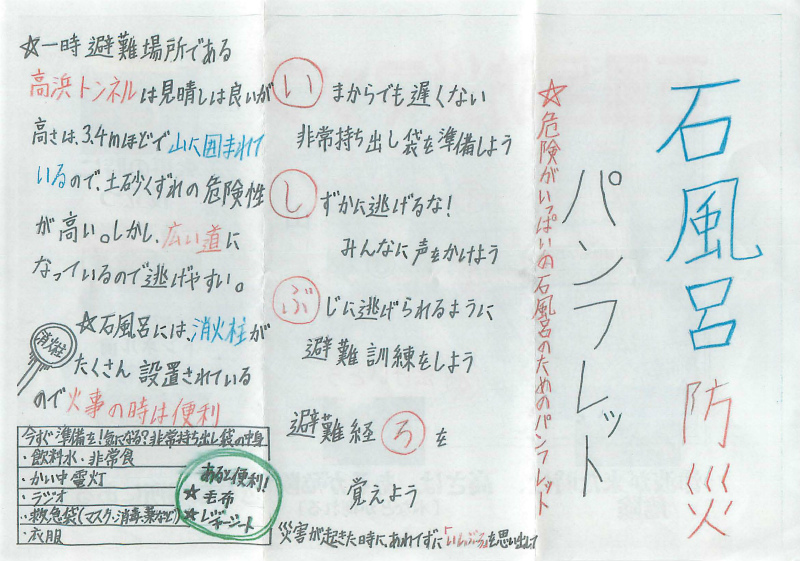 石風呂防災
パンフレット
☆危険がいっぱいの石風呂のためのパンフレット
いまからでも遅くない
非常持ち出し袋を準備しよう
しずかに逃げるな!
みんなに声をかけよう
ぶじに逃げられるように
避難訓練をしよう
避難経ろを
覚えよう
災害が起きた時に、あわてずに「いしぶろ」を思い出して
☆一時避難場所である
高浜トンネルは見晴しは良いが
高さは、3.4mほどで山に囲まれて
いるので、土砂くずれの危険性
が高い。しかし、広い道に
なっているので逃げやすい。
☆石風呂には、消火柱が
たくさん設置されている
ので火事の時は便利
消火柱
今すぐ準備を!気になる?非常持ち出し袋の中身
・飲料水・非常食
・かい中電灯
・ラジオ
・救急袋(マスク・消毒・薬など)
・衣服
あると便利!
★毛布
★レジャーシート